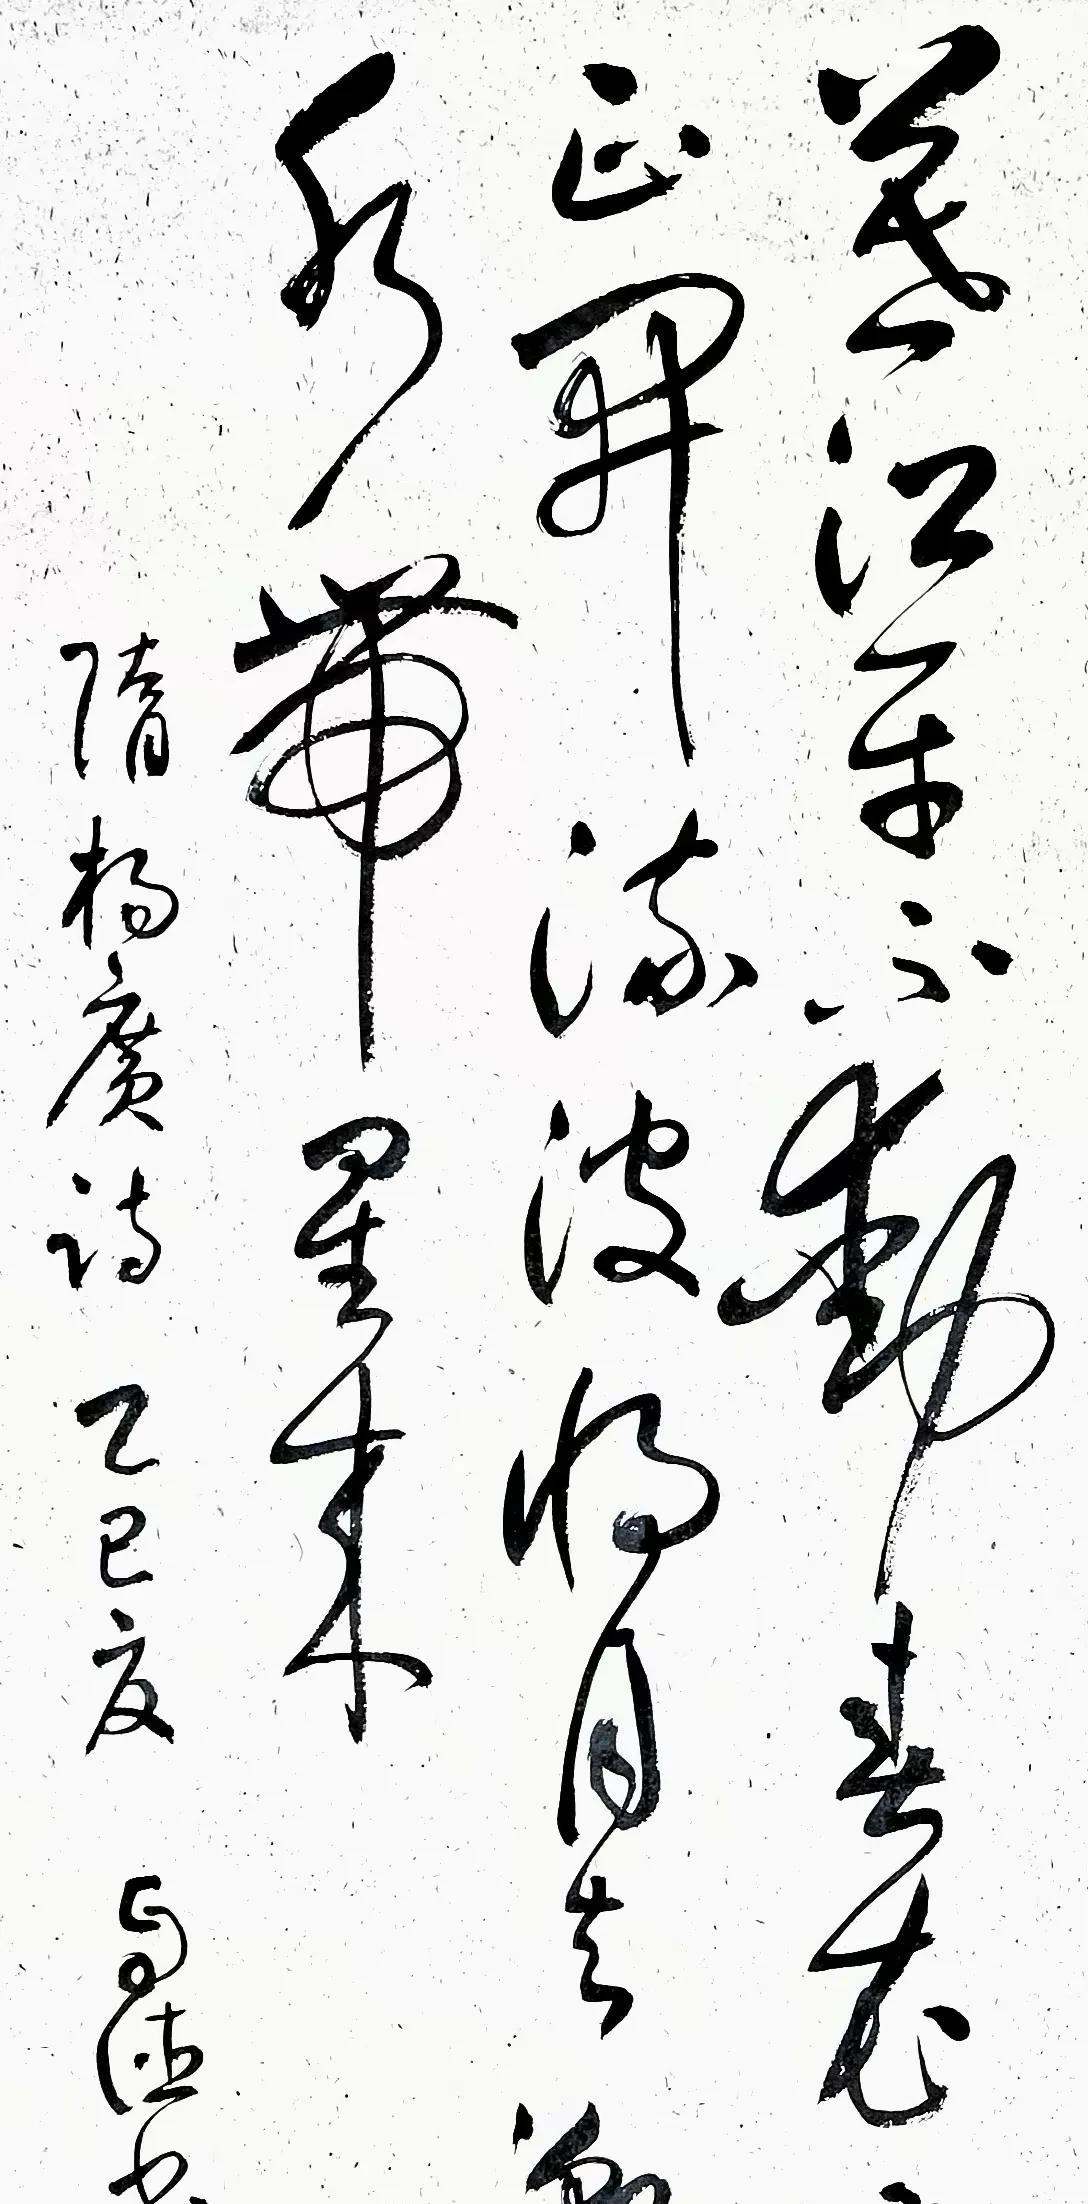 暮江平不動春花
正開流波將月去
水帶星來
隋楊廣詩 乙巳夏 德书